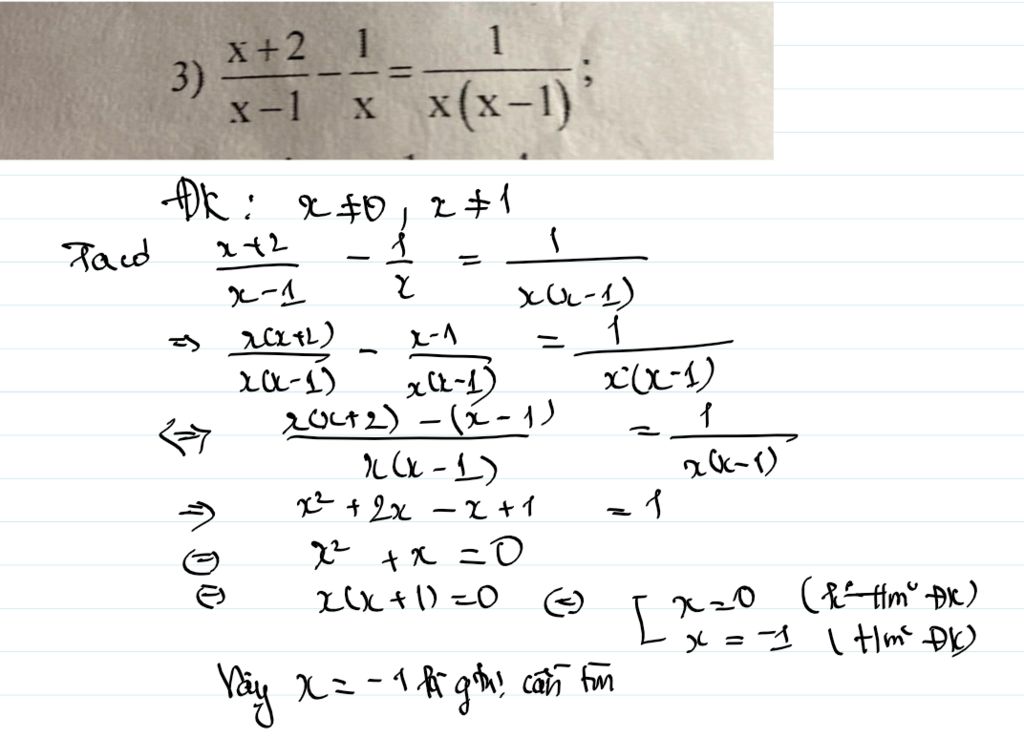 3) \frac{x+2}{x-1} - \frac{1}{x} = \frac{1}{x(x-1)};
ĐK: x ≠ 0, x ≠ 1
Ta có \frac{x+2}{x-1} - \frac{1}{x} = \frac{1}{x(x-1)}
⇒ \frac{x(x+2)}{x(x-1)} - \frac{x-1}{x(x-1)} = \frac{1}{x(x-1)}
⇔ \frac{x(x+2) - (x-1)}{x(x-1)} = \frac{1}{x(x-1)}
⇒ x² + 2x - x + 1 = 1
⇔ x² + x = 0
⇔ x(x+1) = 0 ⇔ [ x = 0 (k° t/m° ĐK)
x = -1 (t/m° ĐK)
Vậy x = -1 là ngh! cần tìm